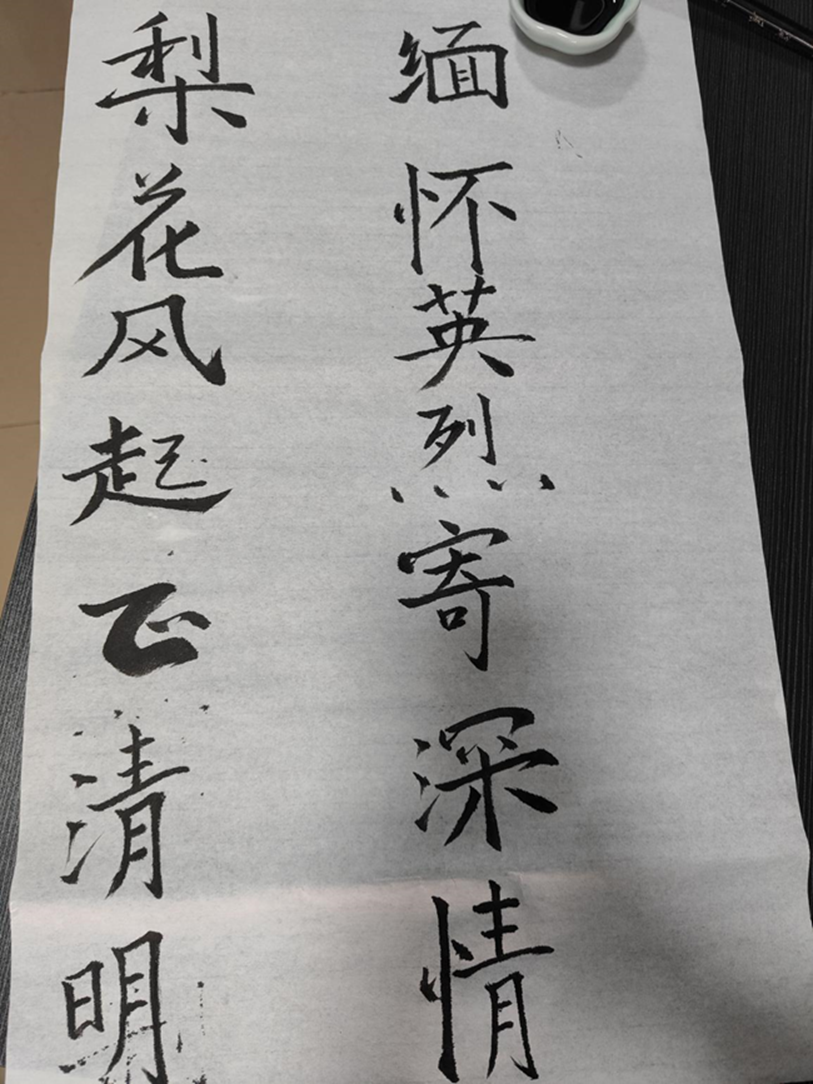 缅怀英烈寄深情
梨花风起正清明